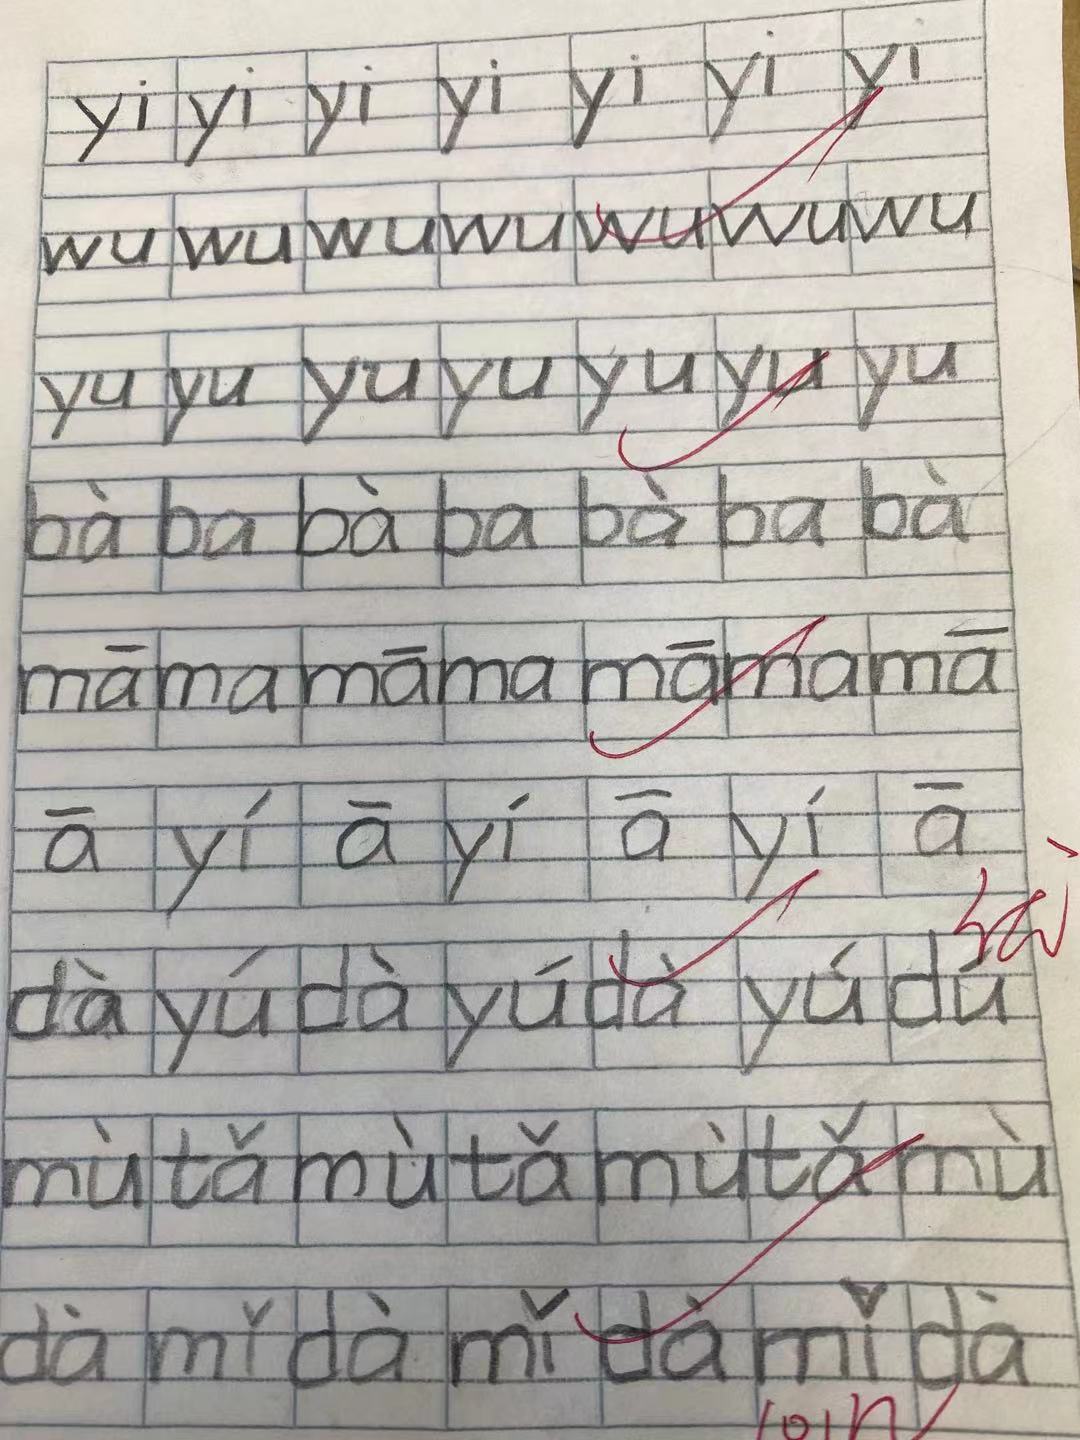 yi yi yi yi yi yi yi
wu wu wu wu wu wu wu
yu yu yu yu yu yu yu
bà ba bà ba bà ba bà
mā ma mā ma mā ma mā
ā yí ā yí ā yí ā
dà yú dà yú dà yú dú
mù tǎ mù tǎ mù tǎ mù
dà mǐ dà mǐ dà mǐ dà